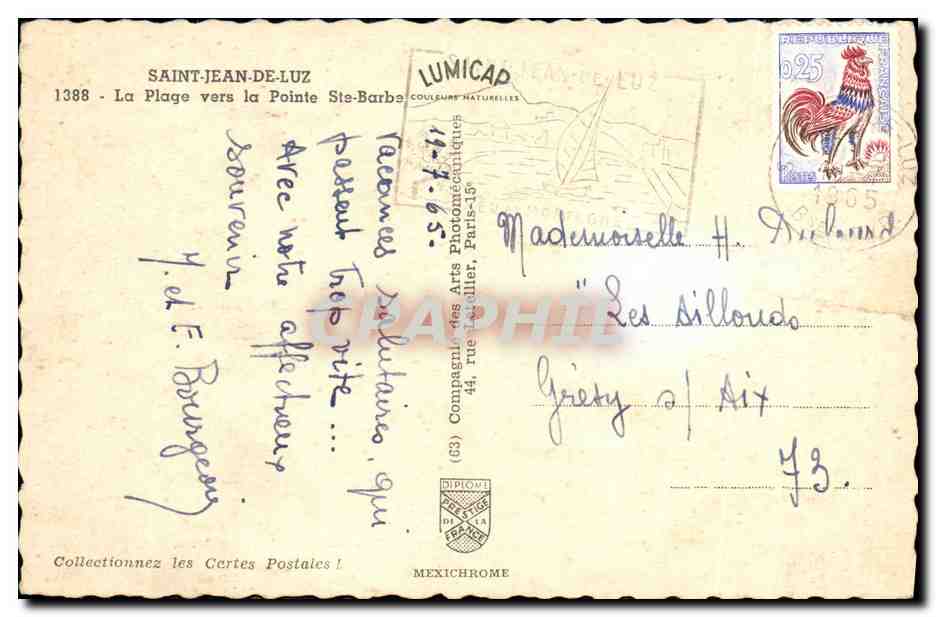 SAINT-JEAN-DE-LUZ
1388 - La Plage vers la Pointe Ste-Barbe
LUMICAP
COULEURS NATURELLES
SAINT-JEAN-DE-LUZ
REPUBLIQUE FRANÇAISE
0,25
POSTES
1965
19-7-65-
vacances salutaires, qui
passent trop vite...
Avec notre affectueux
souvenir
Y. et F. Bourgeois
(63) Compagnie des Arts Photomécaniques
44, rue Letellier, Paris-15e
Mademoiselle H.
"Les Sillonds
Grésy s/ Aix
73.
CPAPHIL
DIPLOME
PRESTIGE
DE LA
FRANCE
MEXICHROME
Collectionnez les Cartes Postales !